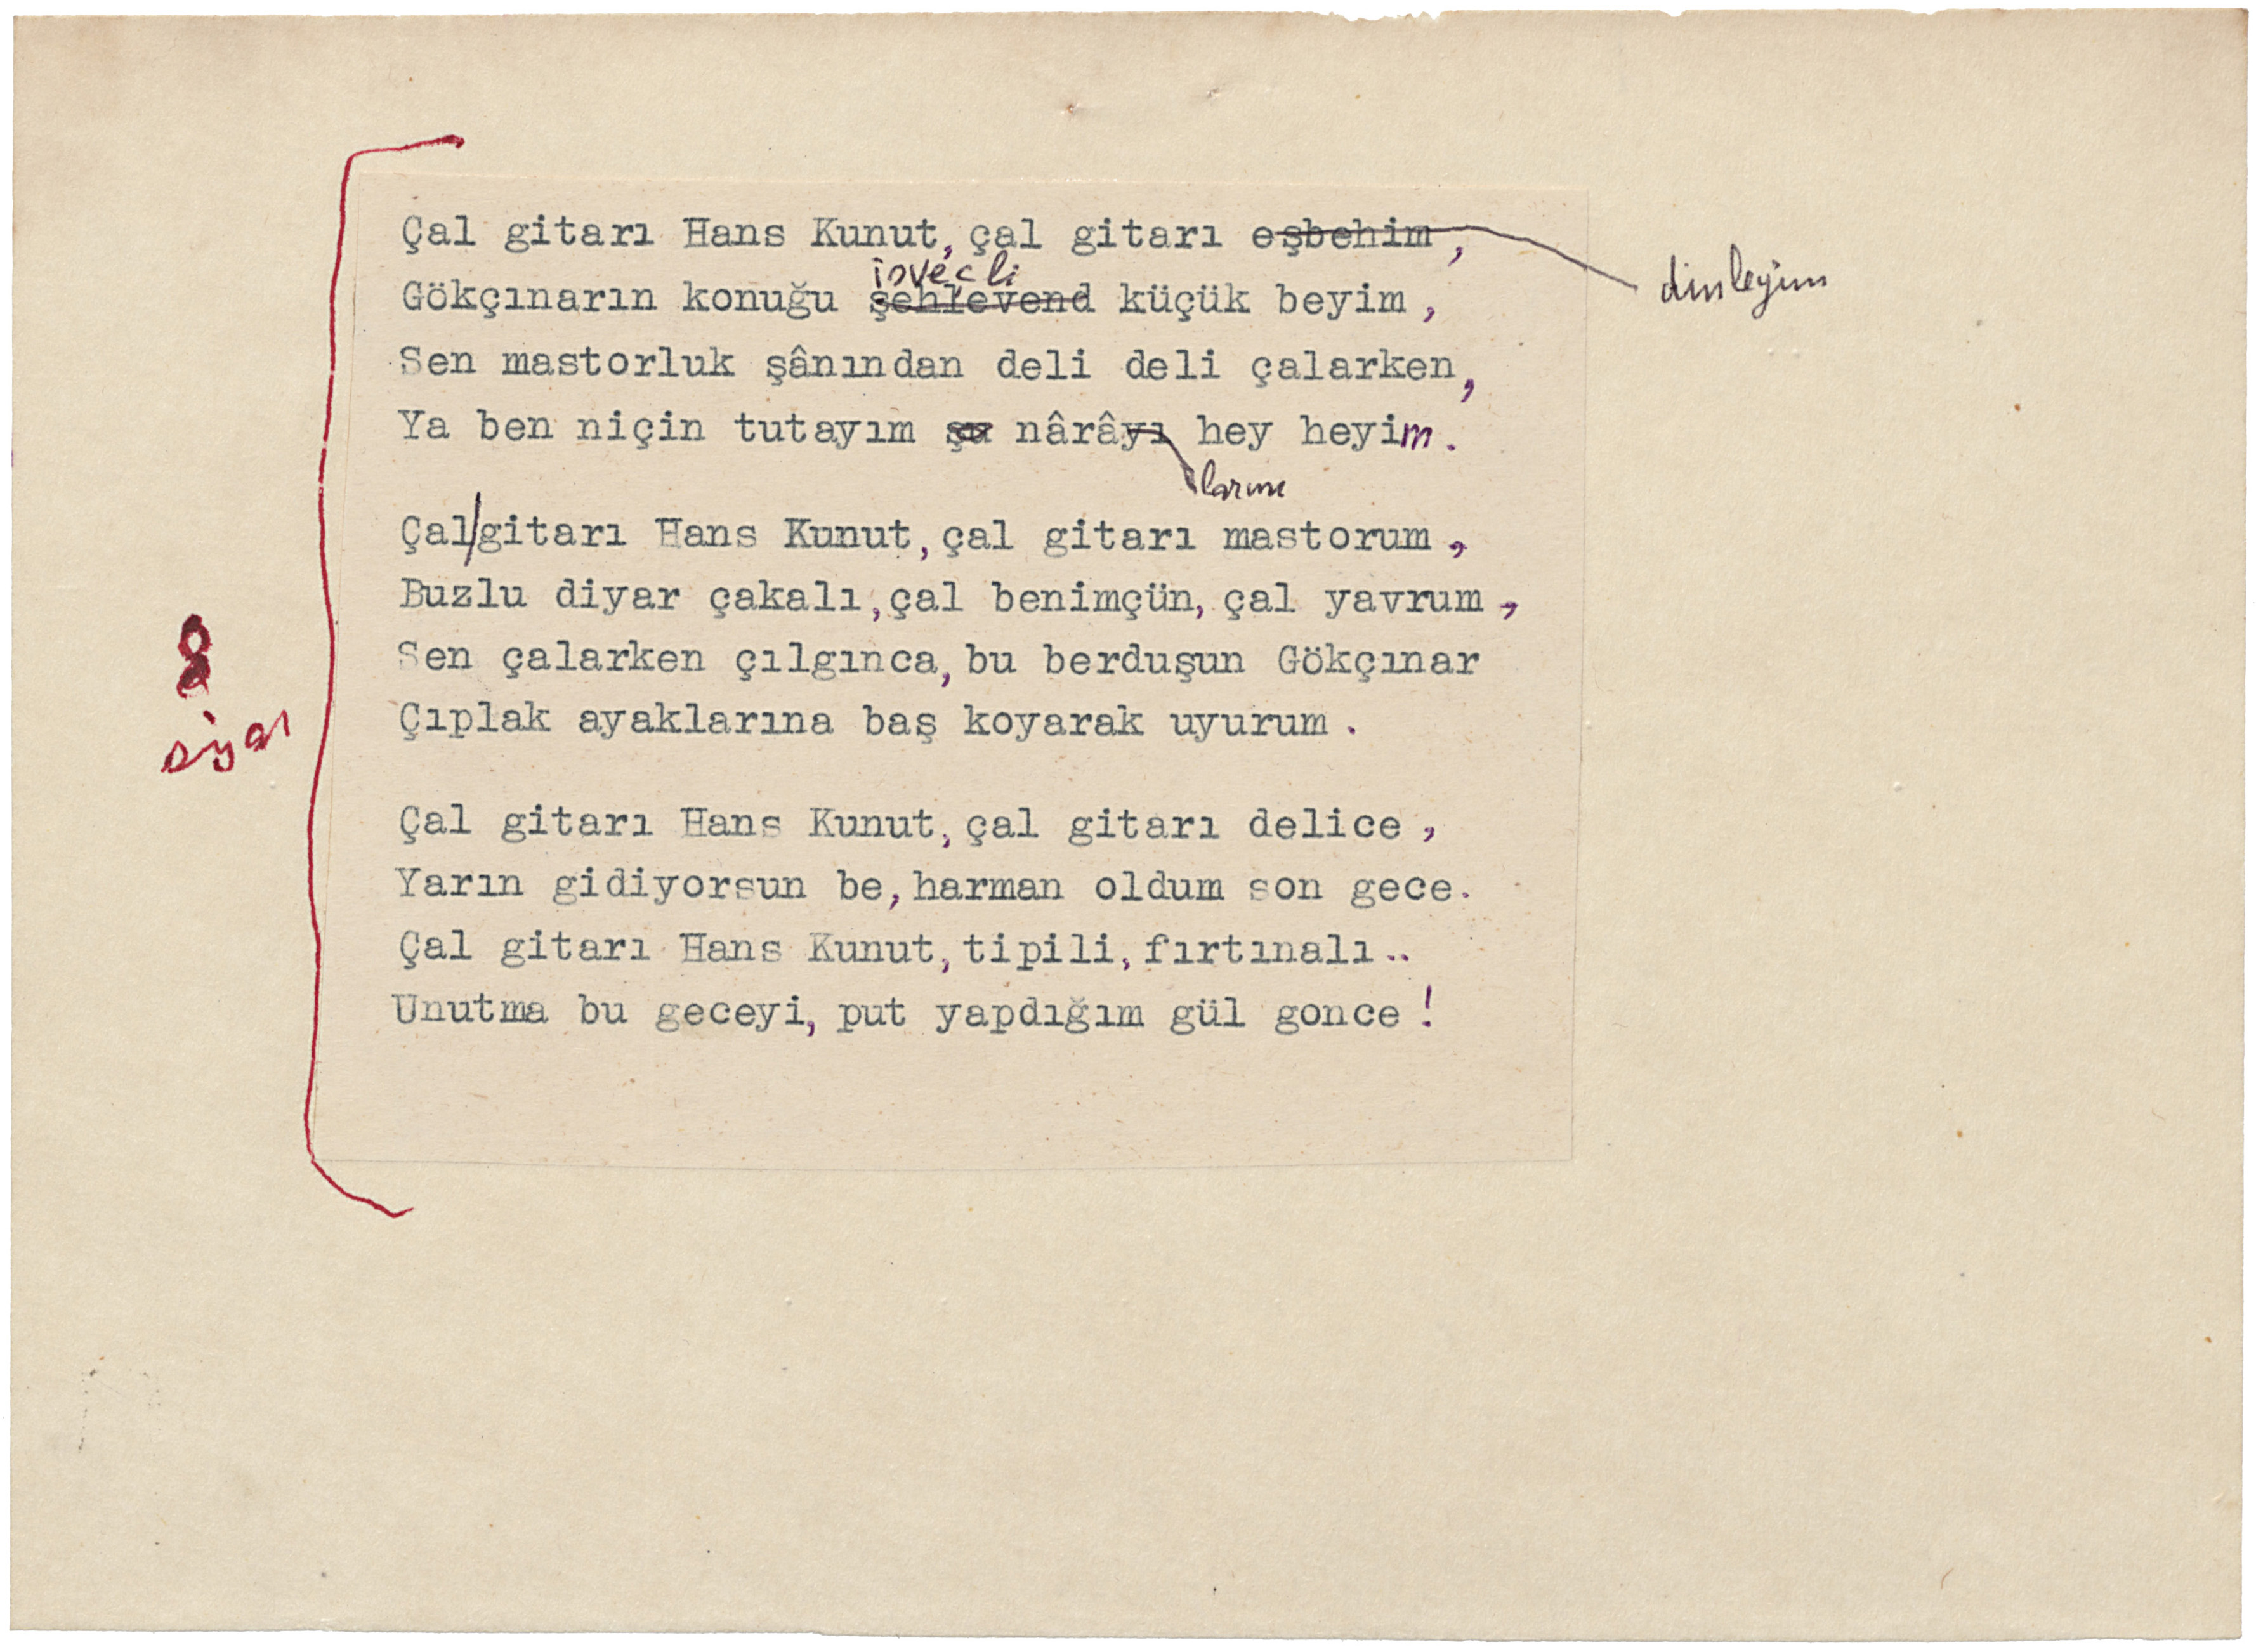 Çal gitarı Hans Kunut, çal gitarı eşbehim,
dinleyim
isveçli
Gökçınarın konuğu şehlevend küçük beyim,
Sen mastorluk şânından deli deli çalarken,
Ya ben niçin tutayım şu nârâyı hey heyim.
larımı
Çal/gitarı Hans Kunut, çal gitarı mastorum,
Buzlu diyar çakalı, çal benimçün, çal yavrum,
Sen çalarken çılgınca, bu berduşun Gökçınar
Çıplak ayaklarına baş koyarak uyurum.
8
siyas
Çal gitarı Hans Kunut, çal gitarı delice,
Yarın gidiyorsun be, harman oldum son gece.
Çal gitarı Hans Kunut, tipili, fırtınalı..
Unutma bu geceyi, put yapdığım gül gonce!